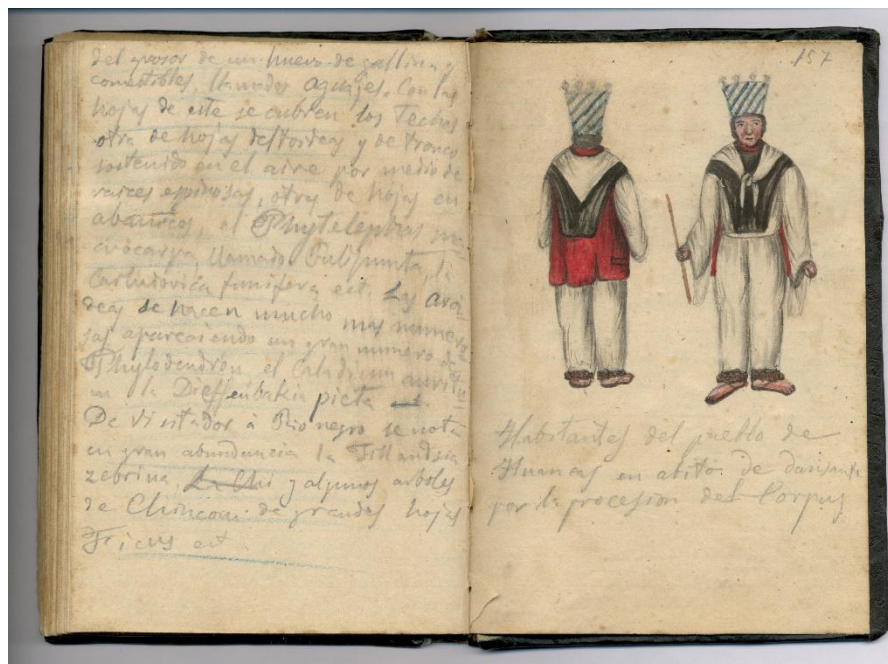 del grosor de un huevo de gallina y
comestibles, llamados aguajes. Con las
hojas de este se cubren los Techos
otra de hojas deltoideas y de tronco
sostenido en el aire por medio de
raices espinosas, otra de hojas en
abanicos, el Phytelephas
llamado Pullipunta, la
Carludovica funifera ect. Las aroi-
deas se hacen mucho mas numero-
sas apareciendo un gran numero de
Phylodendron, el Caladium
la Dieffenbakia picta
De Visitador à Rio negro se nota
en gran abundancia la Tillandsia
zebrina, y algunos arboles
de de grandes hojas
Ficus ect.
157
Habitantes del pueblo de
Huancas en abito de danzante
por la procesion del Corpus